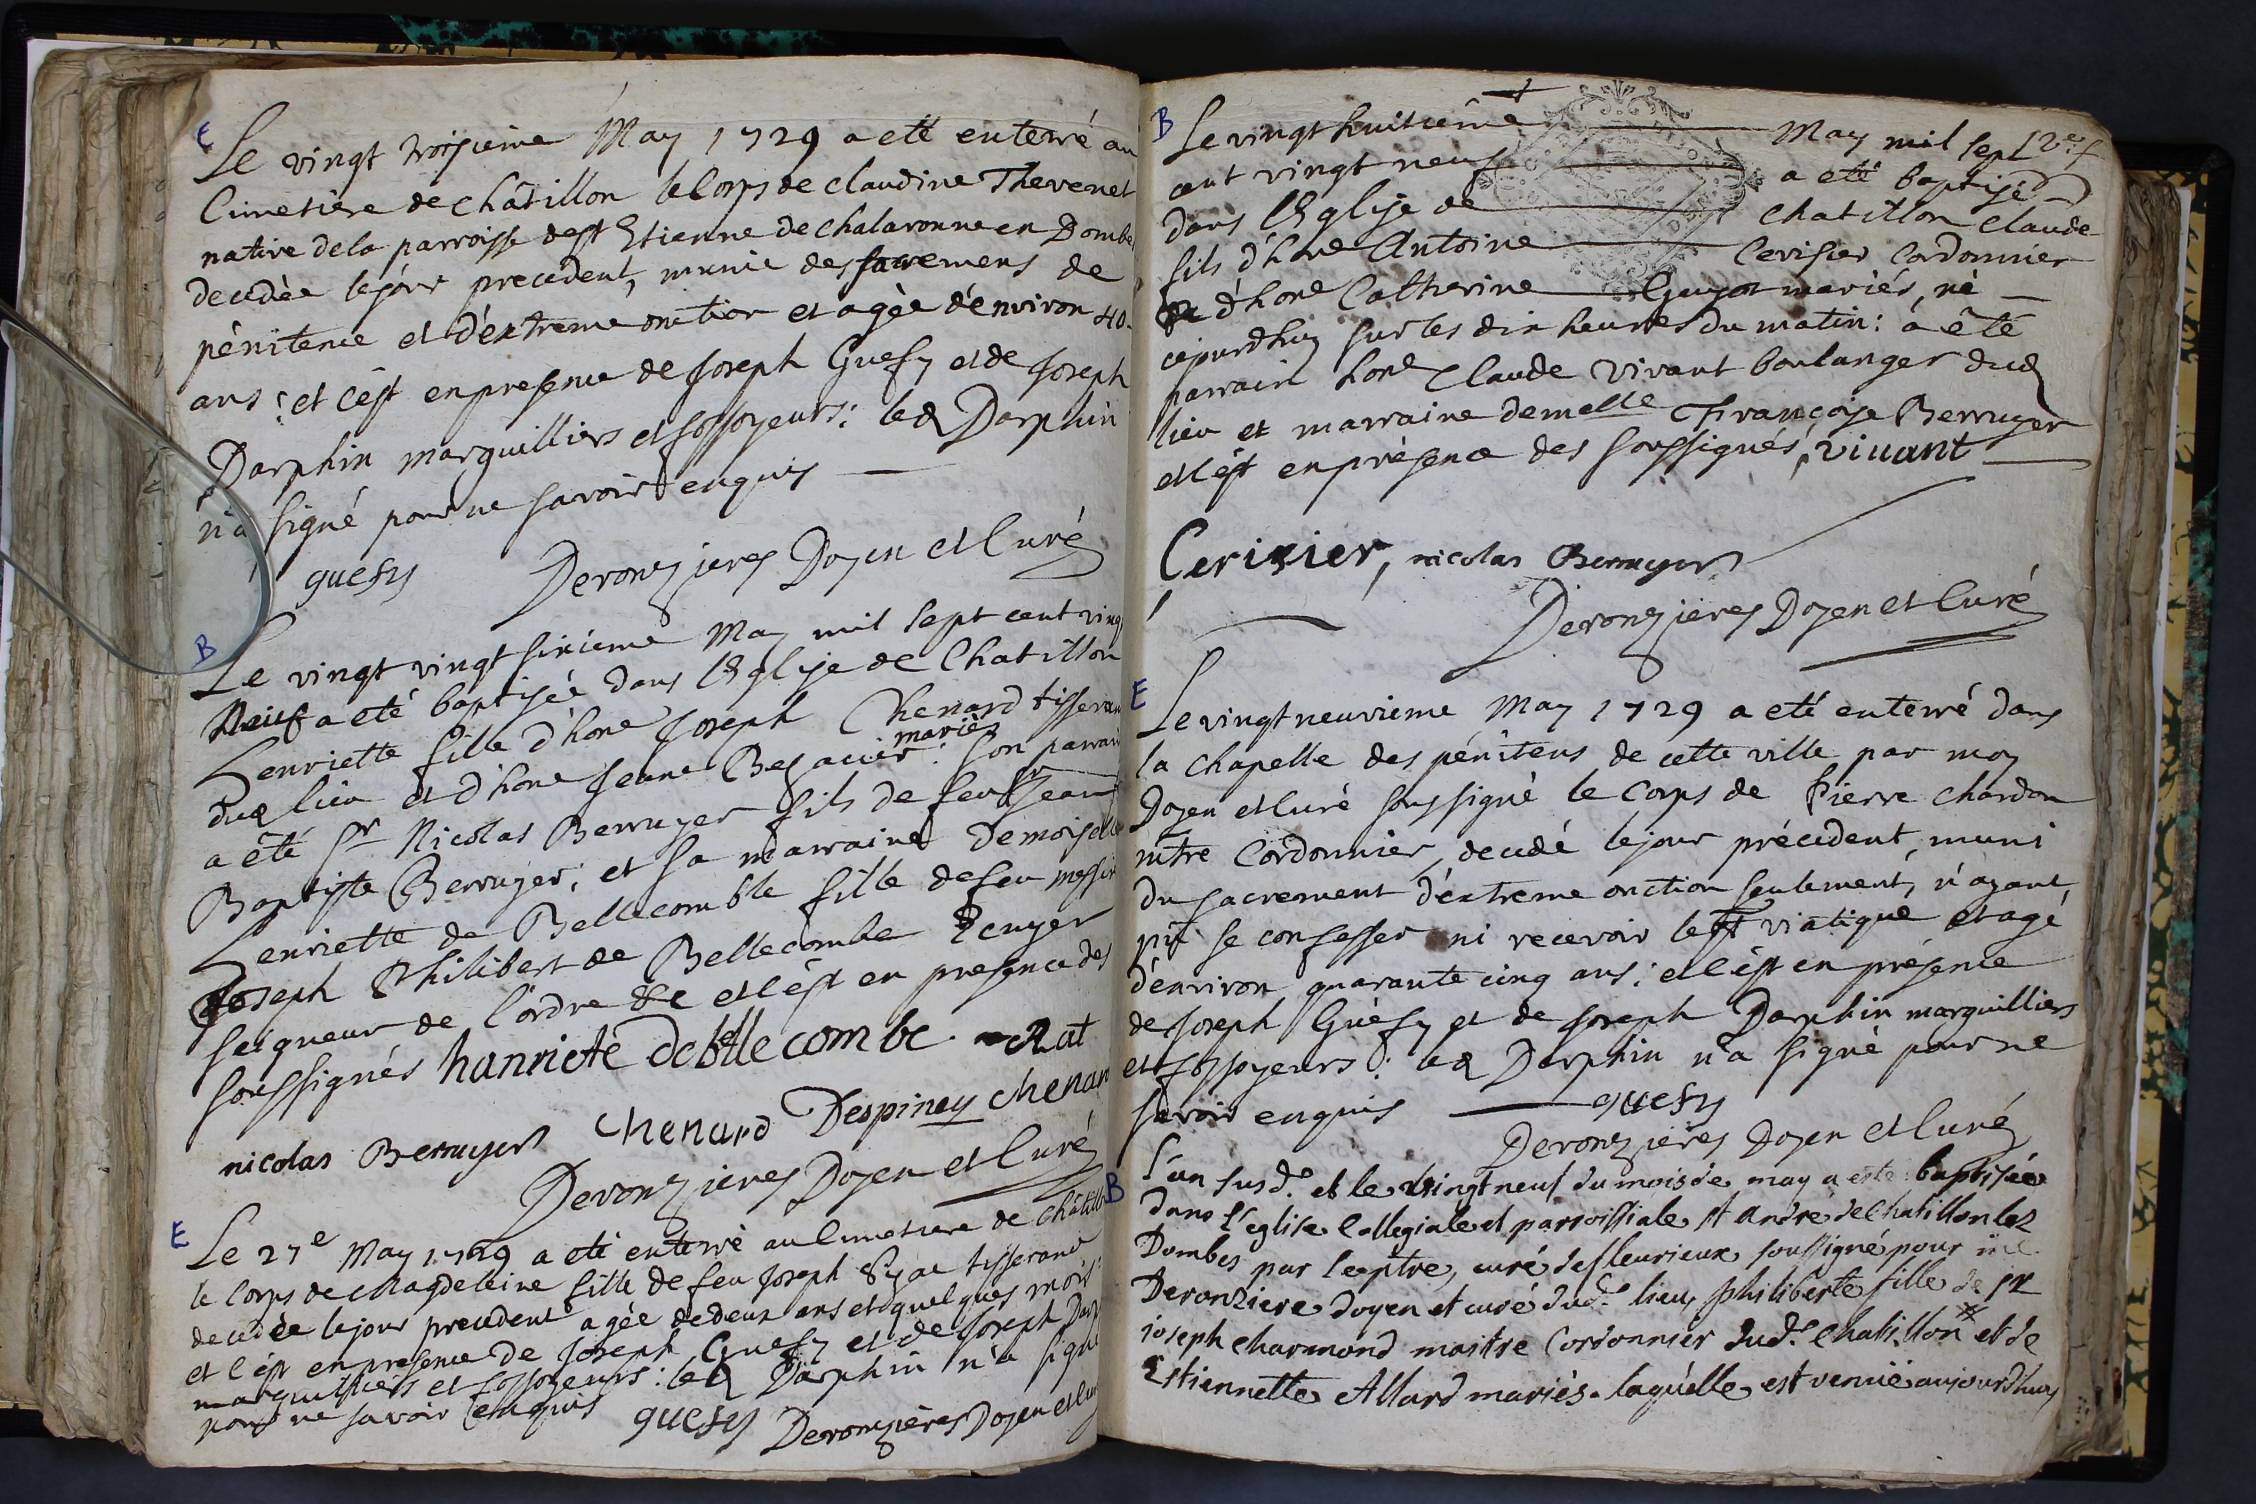 E
Le vingt troisieme May 1729 a eté enterré au
Cimetière de châtillon le Corps de claudine Thevenet
native de la parroisse de st Etienne de chalaronne en Dombe
decedèe le jour precedent, munie des sacremens de
pénitence et d'extreme onction et agèe d'environ 40
ans : et c'est en presence de Joseph Guefy et de Joseph
Darphin marguilliers et fossoyeurs : led Darphin
n'a signé pour ne savoir enquis
guefy Deronzieres Doyen et Curé
B
Le vingt vingt sixieme May mil sept cent vingt
Neuf a eté baptisée dans l'Eglise de Chatillon
henriette fille d'hone Joseph Chenard tisseran
dud lieu et d'hone Jeane Besacier mariès : son parrain
a êté Sr Nicolas Berruyer fils de feu Sr Jean
Baptiste Berruyer, et sa marraine Demoiselle
henriette de Bellecomble fille de feu messire
Joseph Philibert de Bellecombe Ecuyer
seigneur de l'ordre &c et c'est en presence des
soussignés hanriete de bellecombe Rat
nicolas Berruyer Chenard Despiney chenar
Deronzieres Doyen et Curé
E
Le 27e May 1729 a eté enterrè au Cimetiere de châtillo
le corps de Magdeleine fille de feu Joseph tisserand
decedèe le jour precedent agèe de deux ans et quelques mois :
et c'est en presence de Joseph Guefy et de Joseph Darp
marguilliers et fossoyeurs : led Darphin n'a signé
pour ne savoir enquis guefy Deronzières Doyen et Cur
B
Le vingt huitième May mil sept
cent vingt neuf a eté baptisé
dans l'Eglise de chatillon claude
fils d'hone Antoine Cerisier Cordonnier
& d'hone Catherine Guyot mariés, nè
cejourdhuy sur les dix heures du matin : a êté
parrain hone Claude Vivant boulanger dud
lieu et marraine demelle Françoise Berruyer
et c'est en présence des soussignés, vivant
Cerizier, nicolas Berruyer
Deronzieres Doyen et Curé
E
Le vingt neuvieme May 1729 a eté enterré dans
la chapelle des pénitens de cette ville par moy
Doyen et Curé soussigné le Corps de Pierre chardon
mtre Cordonnier, decedé le jour précedent, muni
du sacrement d'extreme onction seulement, n'ayant
pû se confesser ni recevoir le st viatique et agé
d'environ quarante cinq ans : et c'est en présence
de Joseph Guéfy et de Joseph Darphin marguilliers
et fossoyeurs : led Darphin n'a signé pour ne
savoir enquis guefy
Deronzieres Doyen et Curé
B
L'an susd. et le vingt neuf du mois de may a esté baptisée
dans l'eglise Collegiale et parroissiale st André de Chatillon lez
Dombes par , curé de fleurieux soussigné pour
Deronziere doyen et curé dud. lieu, philiberte fille de
joseph charmond maitre Cordonnier dud. Chatillon et de
Estiennette Allard mariés. laquelle est venüe aujourdhuy